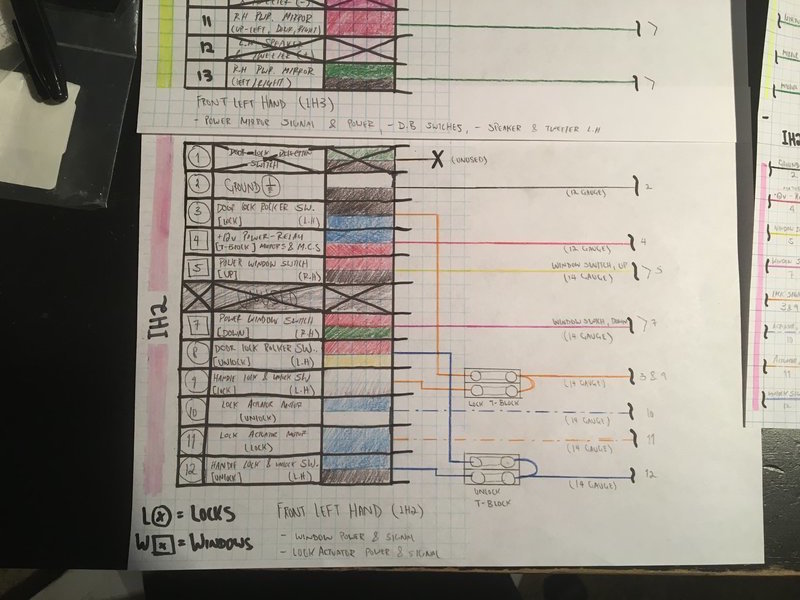 11 R.H PWR. MIRROR
(UP-LEFT, DOWN, RIGHT) 7
12
13 R.H PWR. MIRROR
(LEFT/RIGHT) 7
FRONT LEFT HAND (IH3)
- POWER MIRROR SIGNAL & POWER, - D.B SWITCHES, - SPEAKER & TWEETER L.H
IH2
1 DOOR-LOCK-DETECTION
SWITCH X (UNUSED)
2 GROUND (12 GAUGE) 2
3 DOOR LOCK ROCKER SW.
[LOCK] (L.H)
4 +12V POWER-RELAY
[T-BLOCK] MOTORS & M.C.S (12 GAUGE) 4
5 POWER WINDOW SWITCH
[UP] (R.H) WINDOW SWITCH, UP
(14 GAUGE) 5
7 POWER WINDOW SWITCH
[DOWN] (R.H) WINDOW SWITCH, DOWN
(14 GAUGE) 7
8 DOOR LOCK ROCKER SW.
[UNLOCK] (L.H)
9 HANDLE LOCK & UNLOCK SW
[LOCK] (L.H) (14 GAUGE) 3 & 9
LOCK T-BLOCK
10 LOCK ACTUATOR MOTOR
(UNLOCK) (14 GAUGE) 10
11 LOCK ACTUATOR MOTOR
(LOCK) (14 GAUGE) 11
12 HANDLE LOCK & UNLOCK SW.
[UNLOCK] (L.H) (14 GAUGE) 12
UNLOCK
T-BLOCK
L = LOCKS
W = WINDOWS
FRONT LEFT HAND (IH2)
- WINDOW POWER & SIGNAL
- LOCK ACTUATOR POWER & SIGNAL
IH2